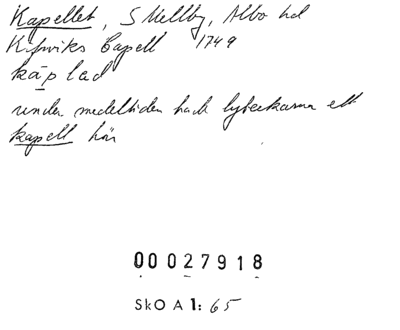 Kapellet, S Mellby, Albo hd
Kifwiks Capell 1749
kap led
under medeltiden hade lybeckarna ett
kapell här
00027918
SkO A 1: 65